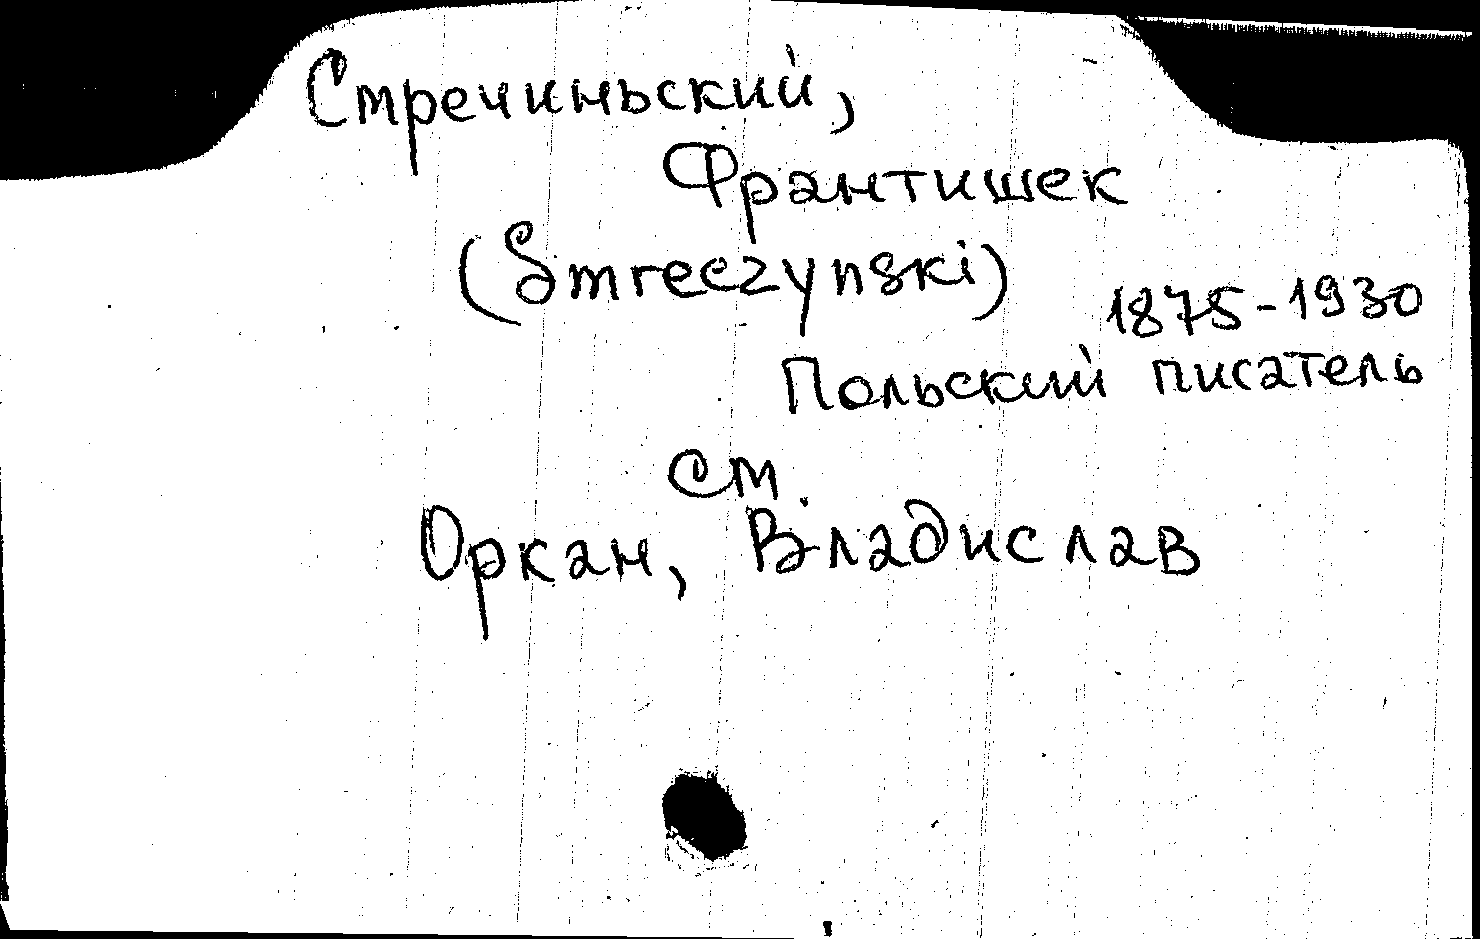 Стречиньский,
Франтишек
(Smreczynski)
1875-1930
Польский писатель
см.
Оркан, Владислав